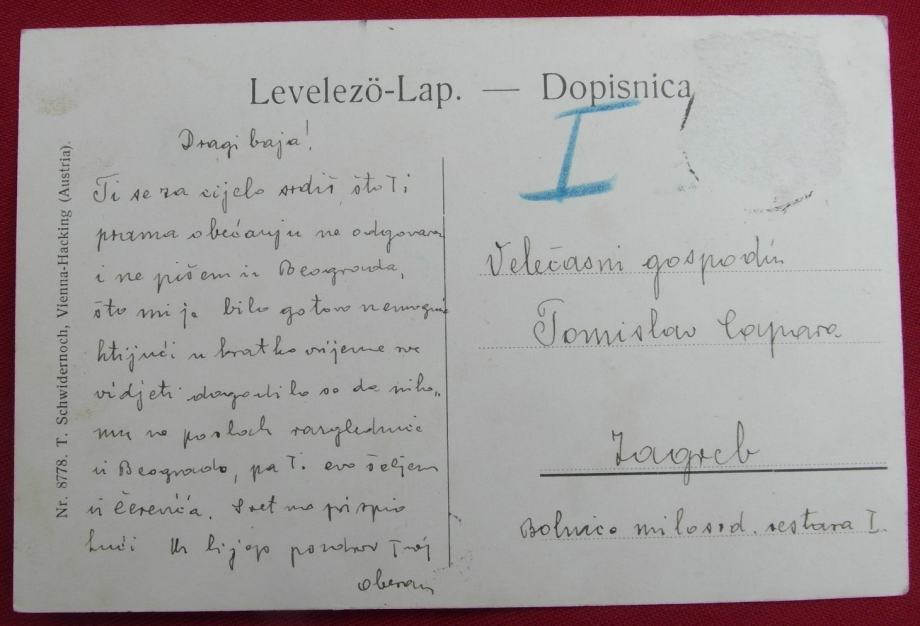 Levelező-Lap. — Dopisnica
Nr. 8778. T. Schwidernoch, Vienna-Hacking (Austria).
I
Dragi baja!
Ti se za cijelo srdiš što Ti
prama obećanju ne odgovara
i ne pišem iz Beograda,
što mi je bilo gotovo nemoguće
htijući u kratko vrijeme sve
vidjeti dogodilo se da niko„
mu ne poslah razglednice
iz Beograda, pa Ti evo šaljem
iz Čerevića. Sretno prispio
kući pozdrav Tvoj
Velečasni gospodin
Tomislav
Zagreb
Bolnica milosrd. sestara I.